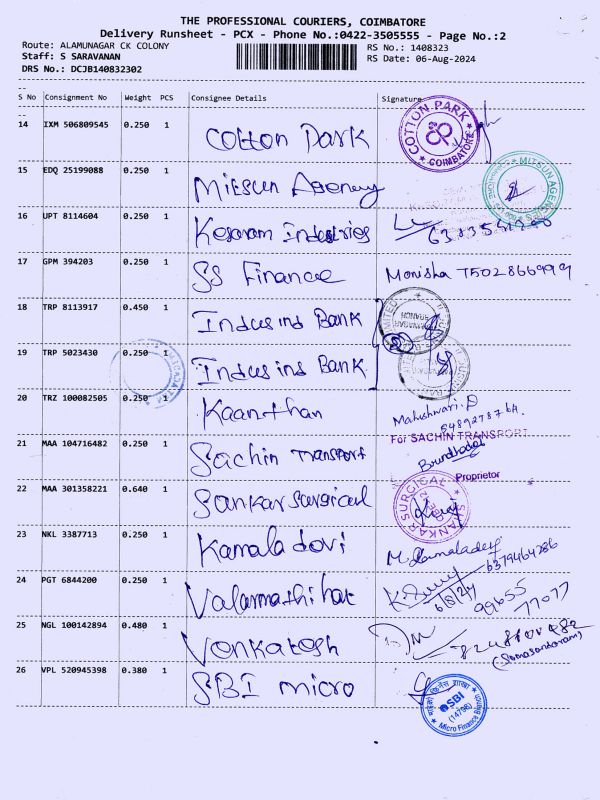 THE PROFESSIONAL COURIERS, COIMBATORE
Delivery Runsheet - PCX - Phone No.:0422-3505555 - Page No.:2
Route: ALAMUNAGAR CK COLONY
RS No.: 1408323
Staff: S SARAVANAN
RS Date: 06-Aug-2024
DRS No.: DCJB140832302
S No Consignment No Weight PCS Consignee Details Signature
14 IXM 506809545 0.250 1 Cotton Park
COTTON PARK COIMBATORE
15 EDQ 25199088 0.250 1 Mitsun Agency
MITSUN AGENCY
16 UPT 8114604 0.250 1 Kesaram Industries
17 GPM 394203 0.250 1 SS Finance Monisha 7502866999
18 TRP 8113917 0.450 1 Indusind Bank
19 TRP 5023430 0.250 1 Indusind Bank
20 TRZ 100082505 0.250 1 Kaanthan Maheshwari.D
21 MAA 104716482 0.250 1 Sachin Transport
For SACHIN TRANSPORT
Proprietor
22 MAA 301358221 0.640 1 Sankar Surgical
SANKAR SURGICAL
23 NKL 3387713 0.250 1 Kamaladevi M. Kamaladevi 6379464286
24 PGT 6844200 0.250 1 Valarmathi
6/8/24 99655 77077
25 NGL 100142894 0.480 1 Venkatesh
(Somasundaram)
26 VPL 520945398 0.380 1 SBI micro
SBI
(14798)
Micro Finance Branch